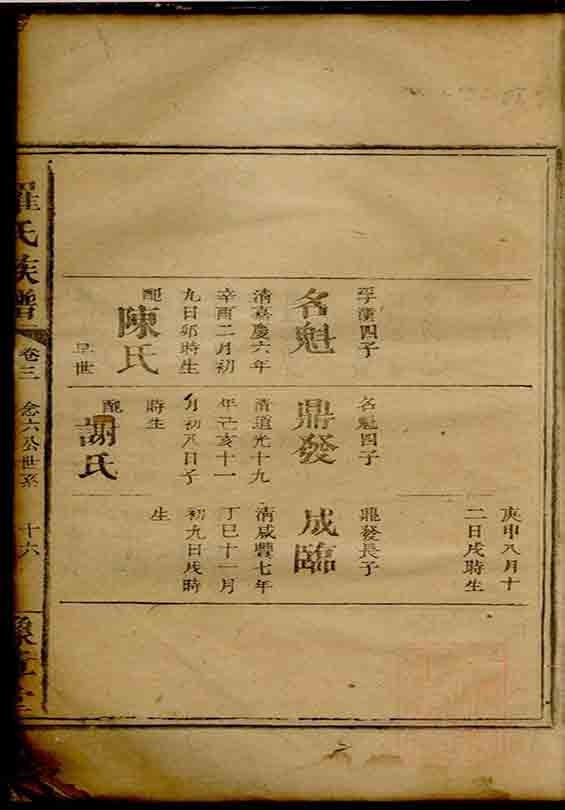 孚漢四子
名魁
清嘉慶六年
辛酉二月初
九日卯時生
配
陳氏
早世
名魁四子
鼎發
清道光十九
年己亥十一
月初八日子
時生
配
謝氏
庚申八月十
二日戌時生
鼎發長子
成臨
清咸豐七年
丁巳十一月
初九日戌時
生
羅氏族譜
卷三
念六公世系
十六
豫章堂